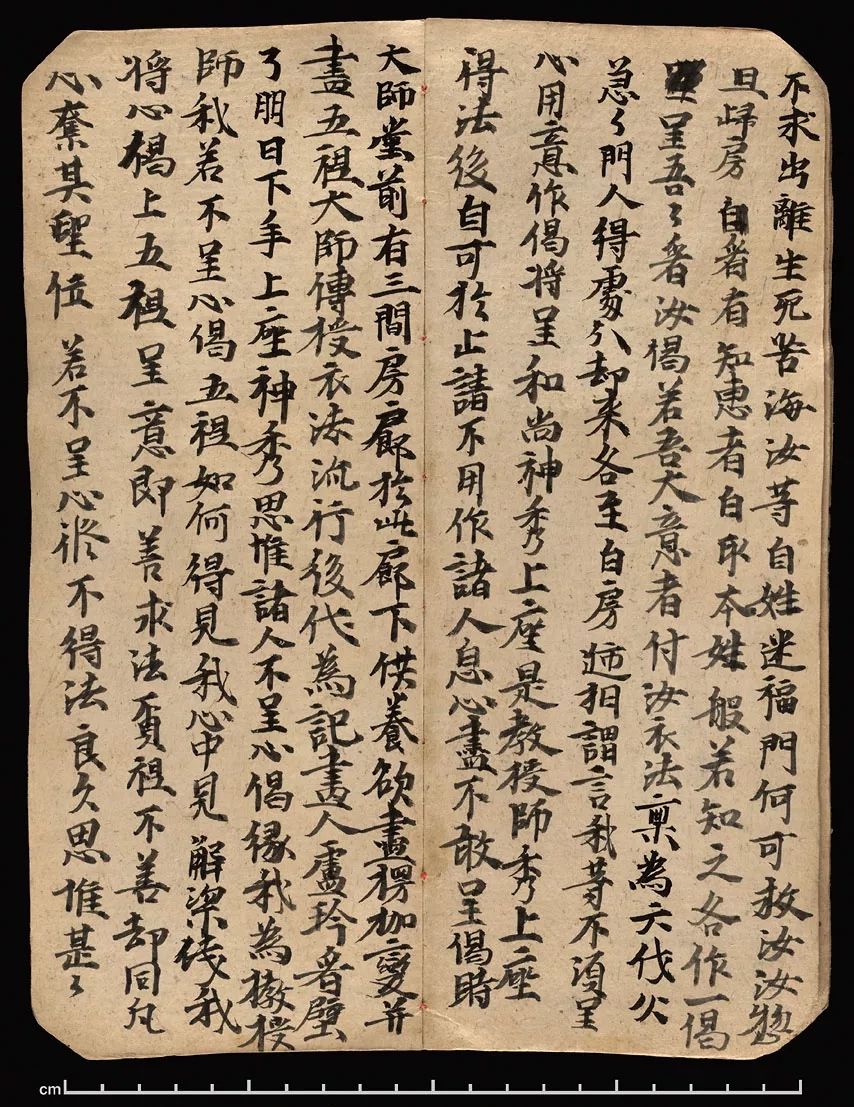 不求出離生死苦海汝等自姓迷福門何可救汝汝惣
且歸房自看有知惠者自取本姓般若知之各作一偈
呈吾吾看汝偈若吾大意者付汝衣法稟為六伐火
急急門人得處分却来各至自房遞相謂言我等不湏呈
心用意作偈将呈和尚神秀上座是教授師秀上座
得法後自可於止請不用作諸人息心盡不敢呈偈時
大師堂前有三間房廊於此廊下供養欲畫楞枷變并
畫五祖大師傳授衣法流行後代為記畫人盧玲看壁
了朋日下手上座神秀思惟諸人不呈心偈緣我為教授
師我若不呈心偈五祖如何得見我心中見解深淺我
将心偈上五祖呈意即善求法覓祖不善却同凢
心奪其聖位若不呈心修不得法良久思惟甚々